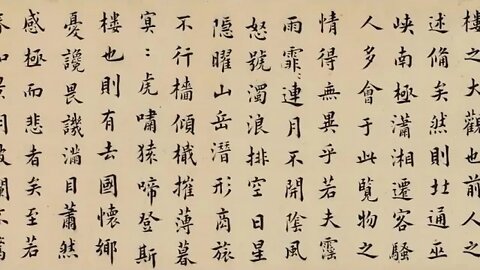 樓之大觀也前人之
述備矣然則北通巫
峽南極瀟湘遷客騷
人多會于此覽物之
情得無異乎若夫霪
雨霏〻連月不開陰風
怒號濁浪排空日星
隱曜山岳潛形商旅
不行檣傾檝摧薄暮
冥〻虎嘯猿啼登斯
樓也則有去國懷鄉
憂讒畏譏滿目蕭然
感極而悲者矣至若